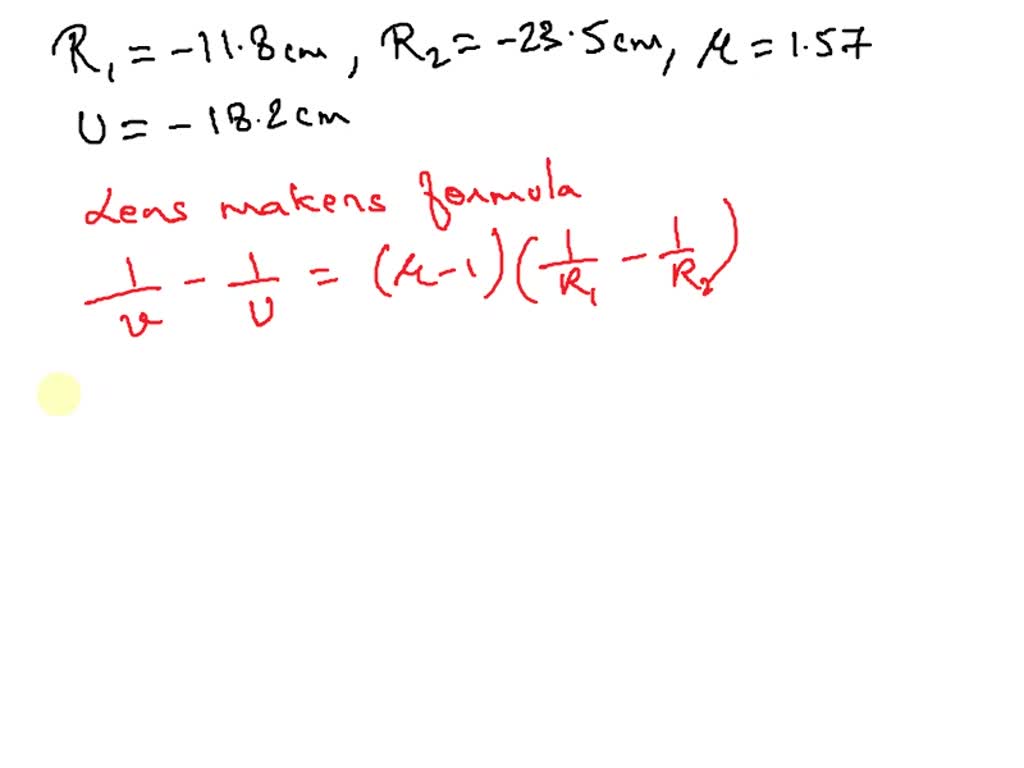 R₁ = -11.8cm, R₂ = -23.5cm, μ = 1.57
U = -18.2cm
Lens makers formula
1/v - 1/U = (μ-1)(1/R₁ - 1/R₂)